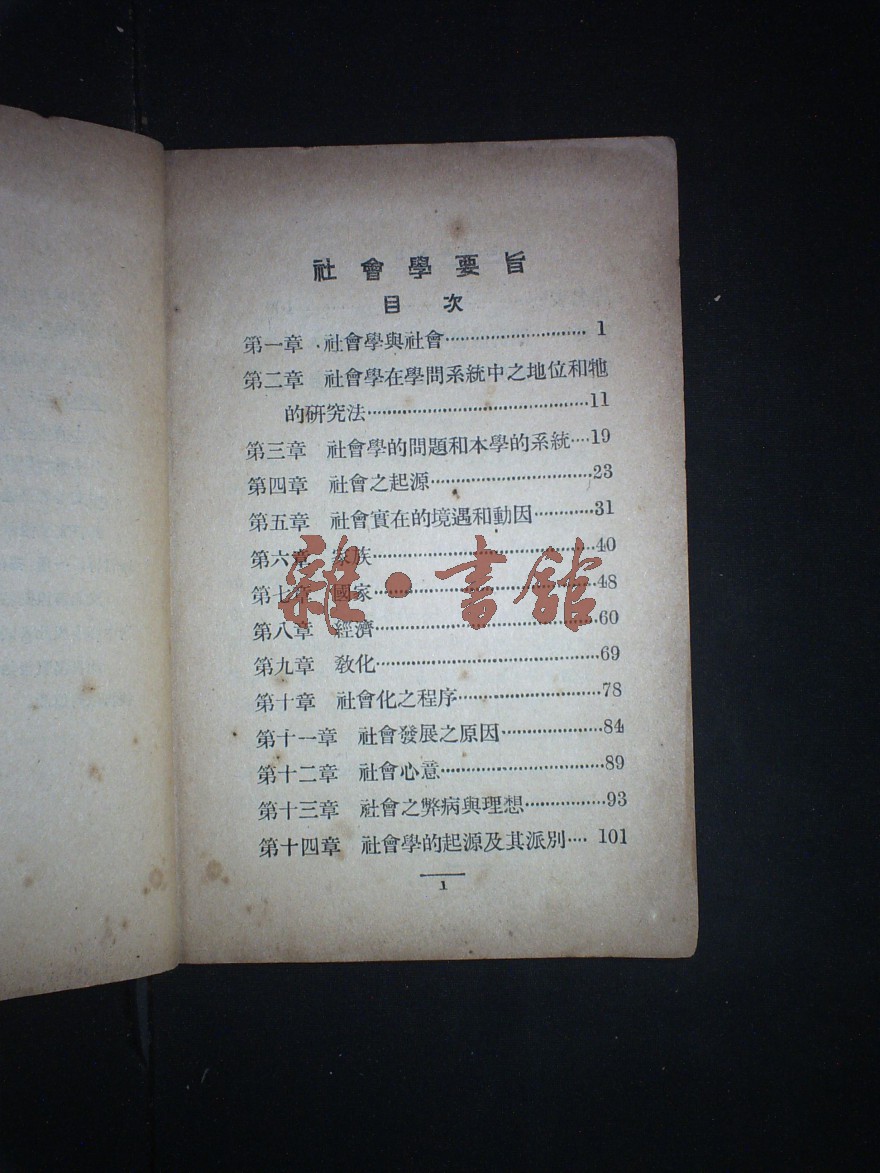 社會學要旨
目次
第一章 社會學與社會………………………… 1
第二章 社會學在學問系統中之地位和牠
的研究法…………………………………11
第三章 社會學的問題和本學的系統…19
第四章 社會之起源………………………23
第五章 社會實在的境遇和動因………31
第六章 家族………………………………40
第七章 國家………………………………48
第八章 經濟………………………………60
第九章 敎化………………………………69
第十章 社會化之程序…………………78
第十一章 社會發展之原因……………84
第十二章 社會心意……………………89
第十三章 社會之弊病與理想…………93
第十四章 社會學的起源及其派別… 101
1
雜·書館